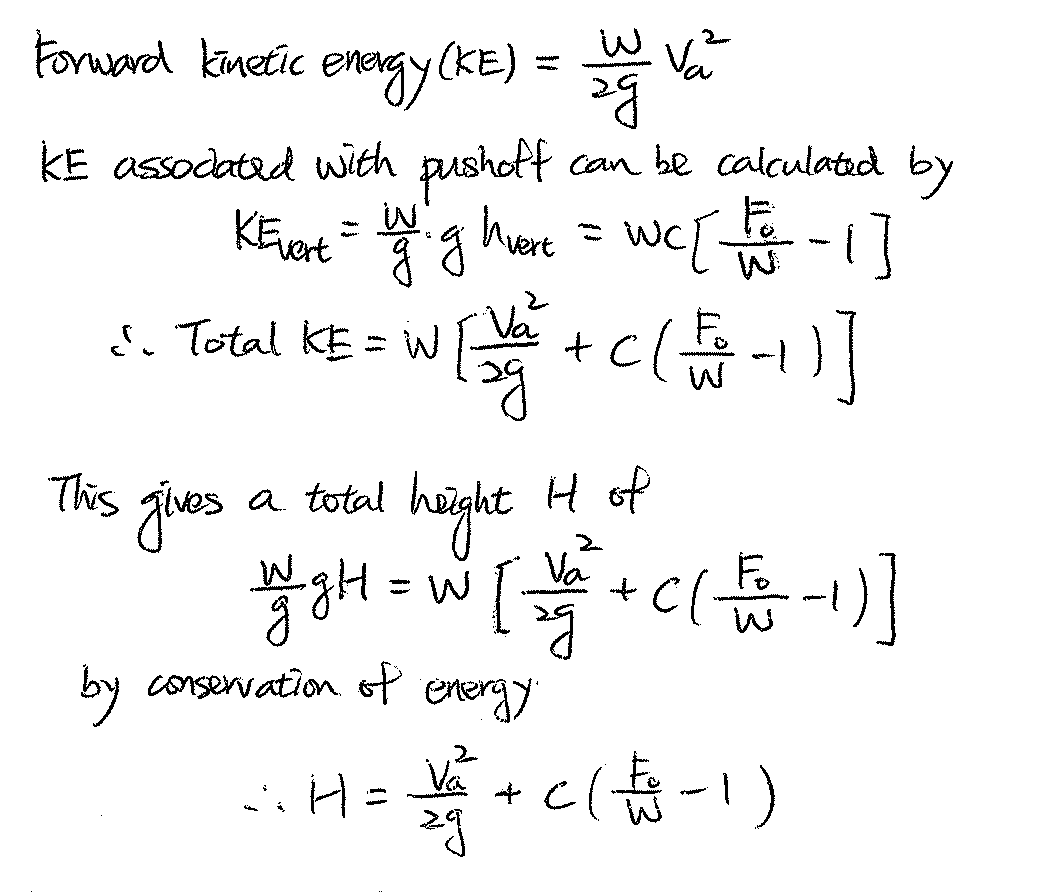 Forward kinetic energy (KE) = \frac{W}{2g} V_a^2
KE associated with pushoff can be calculated by
KE_{vert} = \frac{W}{g} \cdot g h_{vert} = WC [ \frac{F_0}{W} - 1 ]
∴ Total KE = W [ \frac{V_a^2}{2g} + C ( \frac{F_0}{W} - 1 ) ]
This gives a total height H of
\frac{W}{g} g H = W [ \frac{V_a^2}{2g} + C ( \frac{F_0}{W} - 1 ) ]
by conservation of energy
∴ H = \frac{V_a^2}{2g} + C ( \frac{F_0}{W} - 1 )